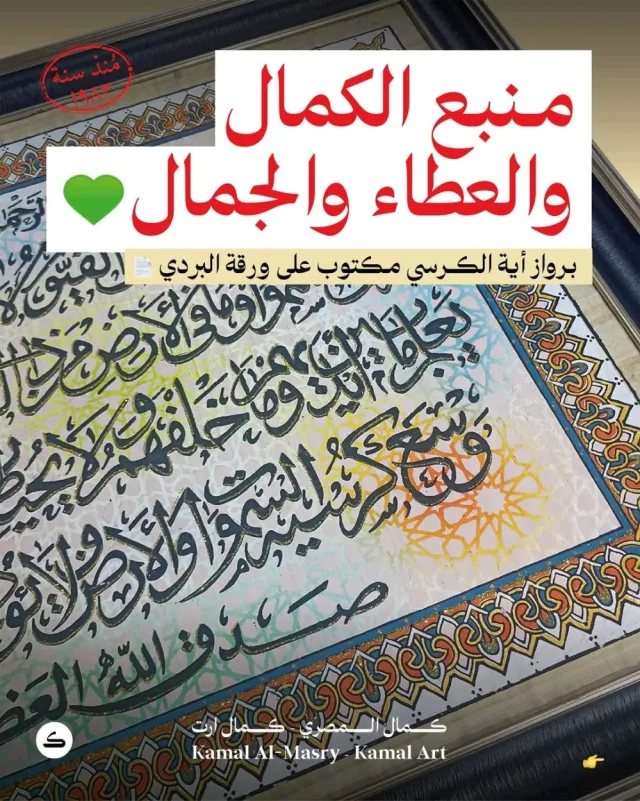 مُنذ سنة
١٩٨٣
منبع الكمال
والعطاء والجمال
برواز أية الكرسي مكتوب على ورقة البردي
الرحمن
القيوم لا
السموات وما في الأرض من ذا ا
يعلم ما بين أيديهم وما خلفهم ولا يحيط
وسع كرسيه السموات والأرض ولا يئو
صدق الله العظ
كمال المصري - كمال ارت
Kamal Al-Masry - Kamal Art
ك